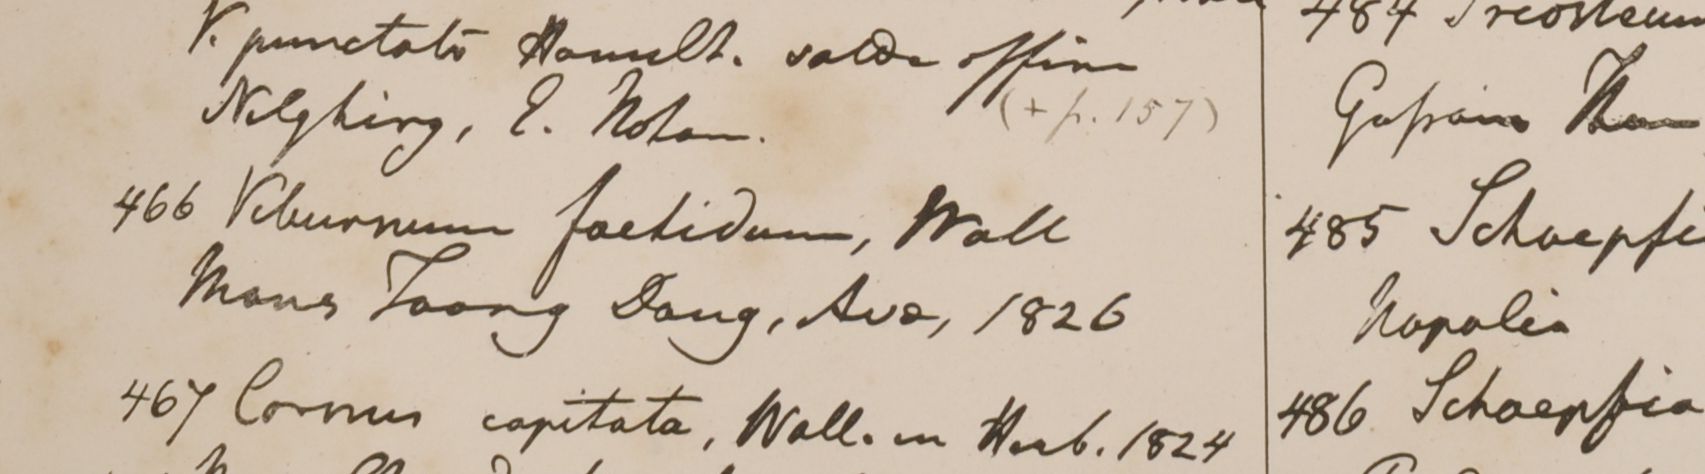 V. punctato Hamilt. valde affine
(+ p. 157)
Nilghiry, E. Noton.
466 Viburnum foetidum, Wall
Mons Taong Dong, Ava, 1826
467 Cornus capitata, Wall. in Herb. 1824
484 Triosteum
485 Schoepfi
Napalia
486 Schoepfia